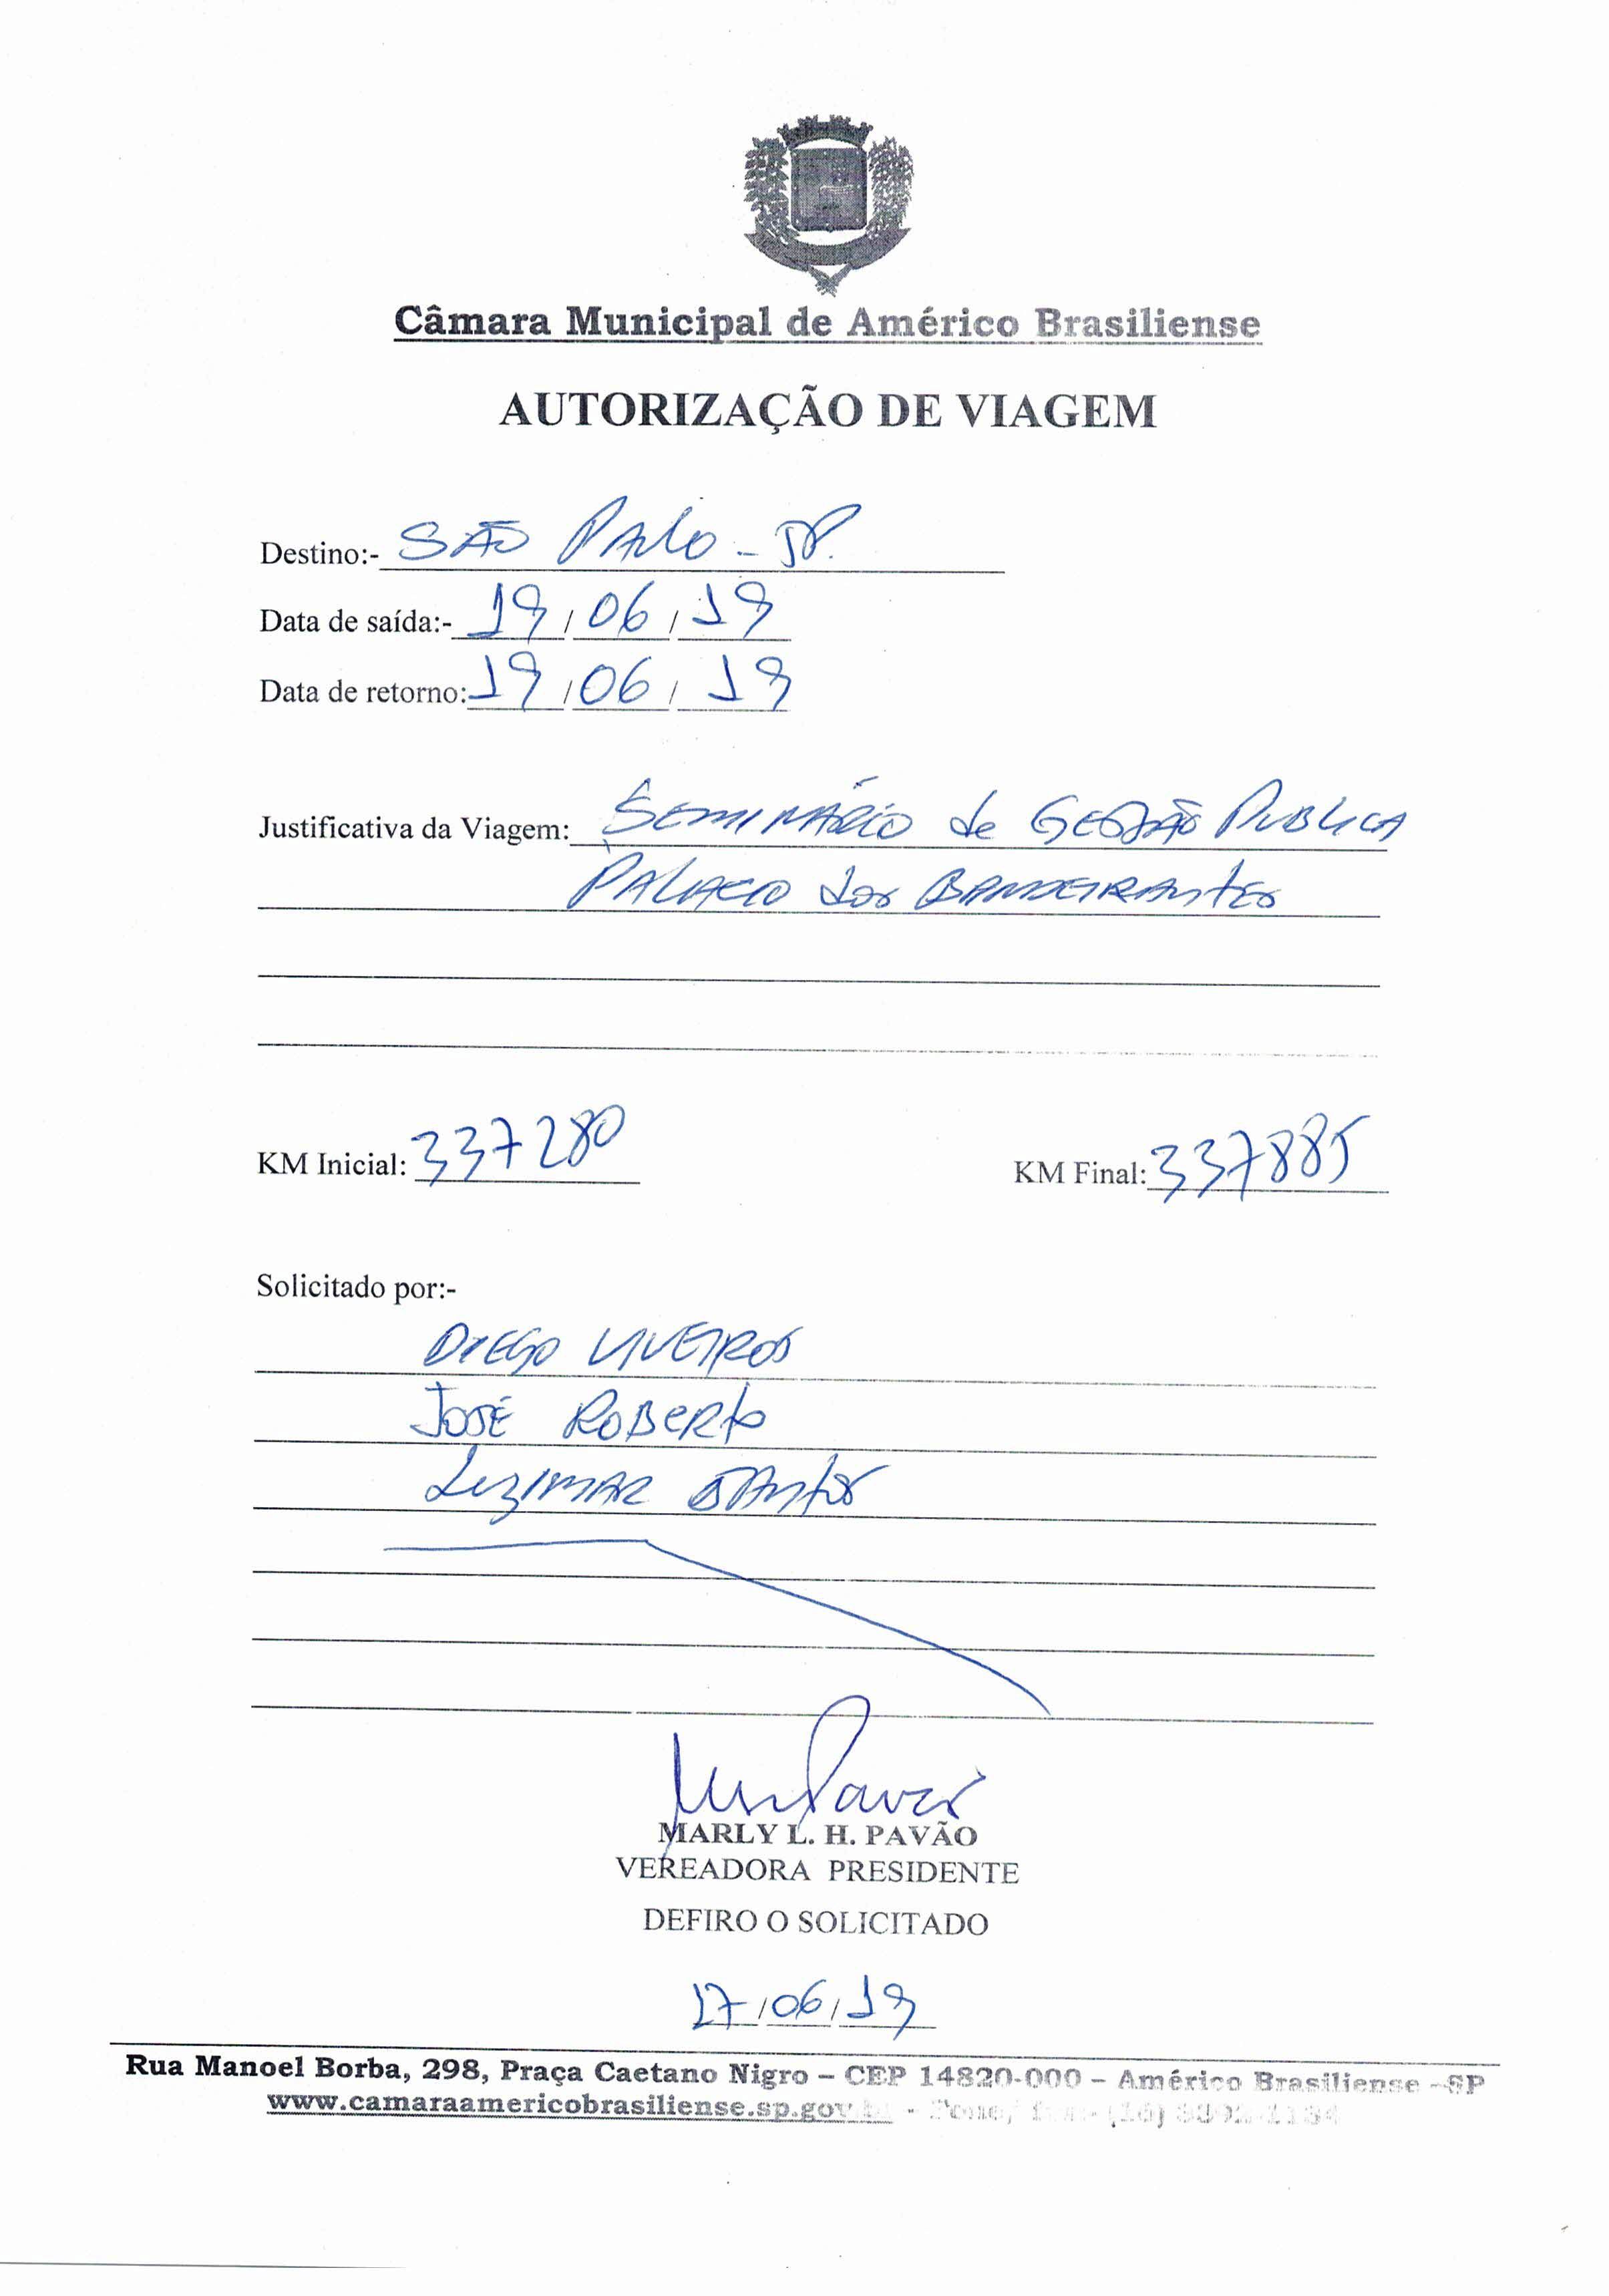 Câmara Municipal de Américo Brasiliense
AUTORIZAÇÃO DE VIAGEM
Destino:- SÃO PAULO - SP.
Data de saída:- 19/06/19
Data de retorno: 19/06/19
Justificativa da Viagem: SEMINÁRIO de GESTÃO PUBLICA
PALÁCIO dos BANDEIRANTES
KM Inicial: 337280 KM Final: 337885
Solicitado por:-
DIEGO VIVEIROS
JOSÉ ROBERTO
LUZIMAR SANTOS
MARLY L. H. PAVÃO
VEREADORA PRESIDENTE
DEFIRO O SOLICITADO
17/06/19
Rua Manoel Borba, 298, Praça Caetano Nigro – CEP 14820-000 – Américo Brasiliense –SP
www.camaraamericobrasiliense.sp.gov.br - Fone/ (16)